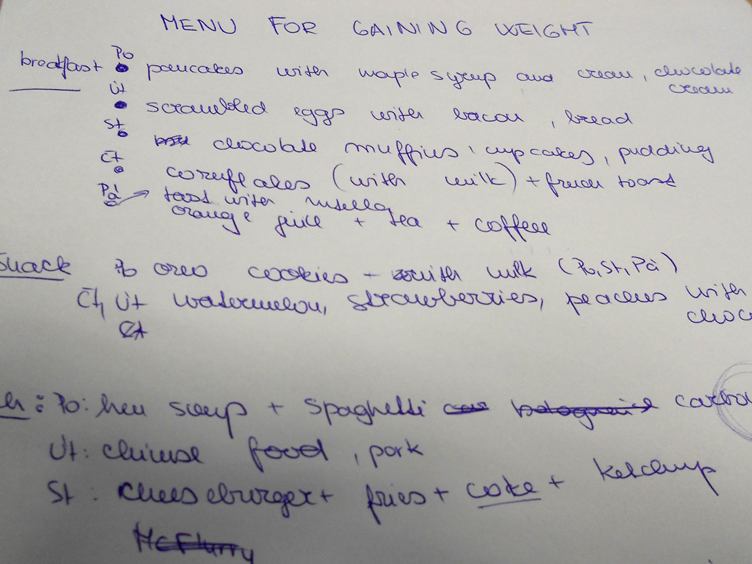 MENU FOR GAINING WEIGHT
breakfast Po • pancakes with maple syrup and cream, chocolate cream
Út • scrambled eggs with bacon, bread
St • chocolate muffins, cupcakes, pudding
Čt • cornflakes (with milk) + french toast
Pá toast with nutella
orange juice + tea + coffee
Snack oreo cookies - with milk (Po, St, Pá)
Čt, Út watermelon, strawberries, peaches with
choc
Čt
Po: hen soup + spaghetti carbo
Út: chinese food, pork
St: cheeseburger + fries + coke + ketchup
McFlurry